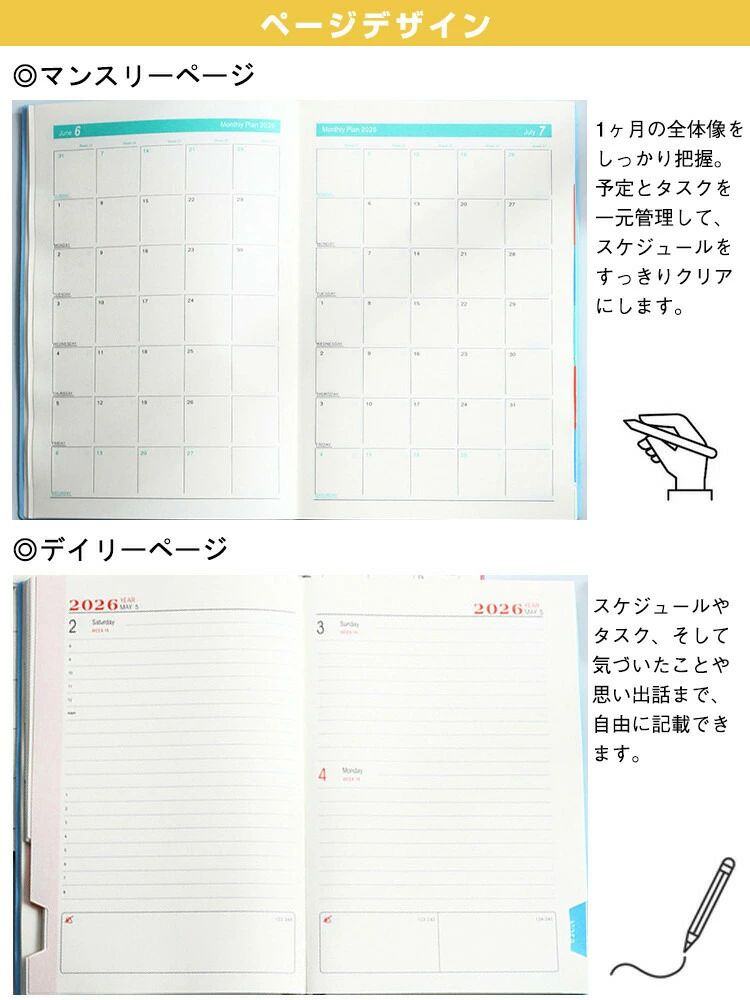 ページデザイン
◎マンスリーページ
June 6 Monthly Plan 2026
31 7 14 21 28
SUNDAY
1 8 15 22 29
MONDAY
2 9 16 23 30
TUESDAY
3 10 17 24
WEDNESDAY
4 11 18 25
THURSDAY
5 12 19 26
FRIDAY
6 13 20 27
SATURDAY
Monthly Plan 2026 July 7
SUNDAY
6 13 20 27
MONDAY
7 14 21 28
TUESDAY
1 8 15 22 29
WEDNESDAY
2 9 16 23 30
THURSDAY
3 10 17 24 31
FRIDAY
4 11 18 25
SATURDAY
1ヶ月の全体像を
しっかり把握。
予定とタスクを
一元管理して、
スケジュールを
すっきりクリア
にします。
◎デイリーページ
2026 YEAR
MAY 5
2 Saturday
2026 YEAR
MAY 5
3 Sunday
4 Monday
スケジュールや
タスク、そして
気づいたことや
思い出話まで、
自由に記載でき
ます。